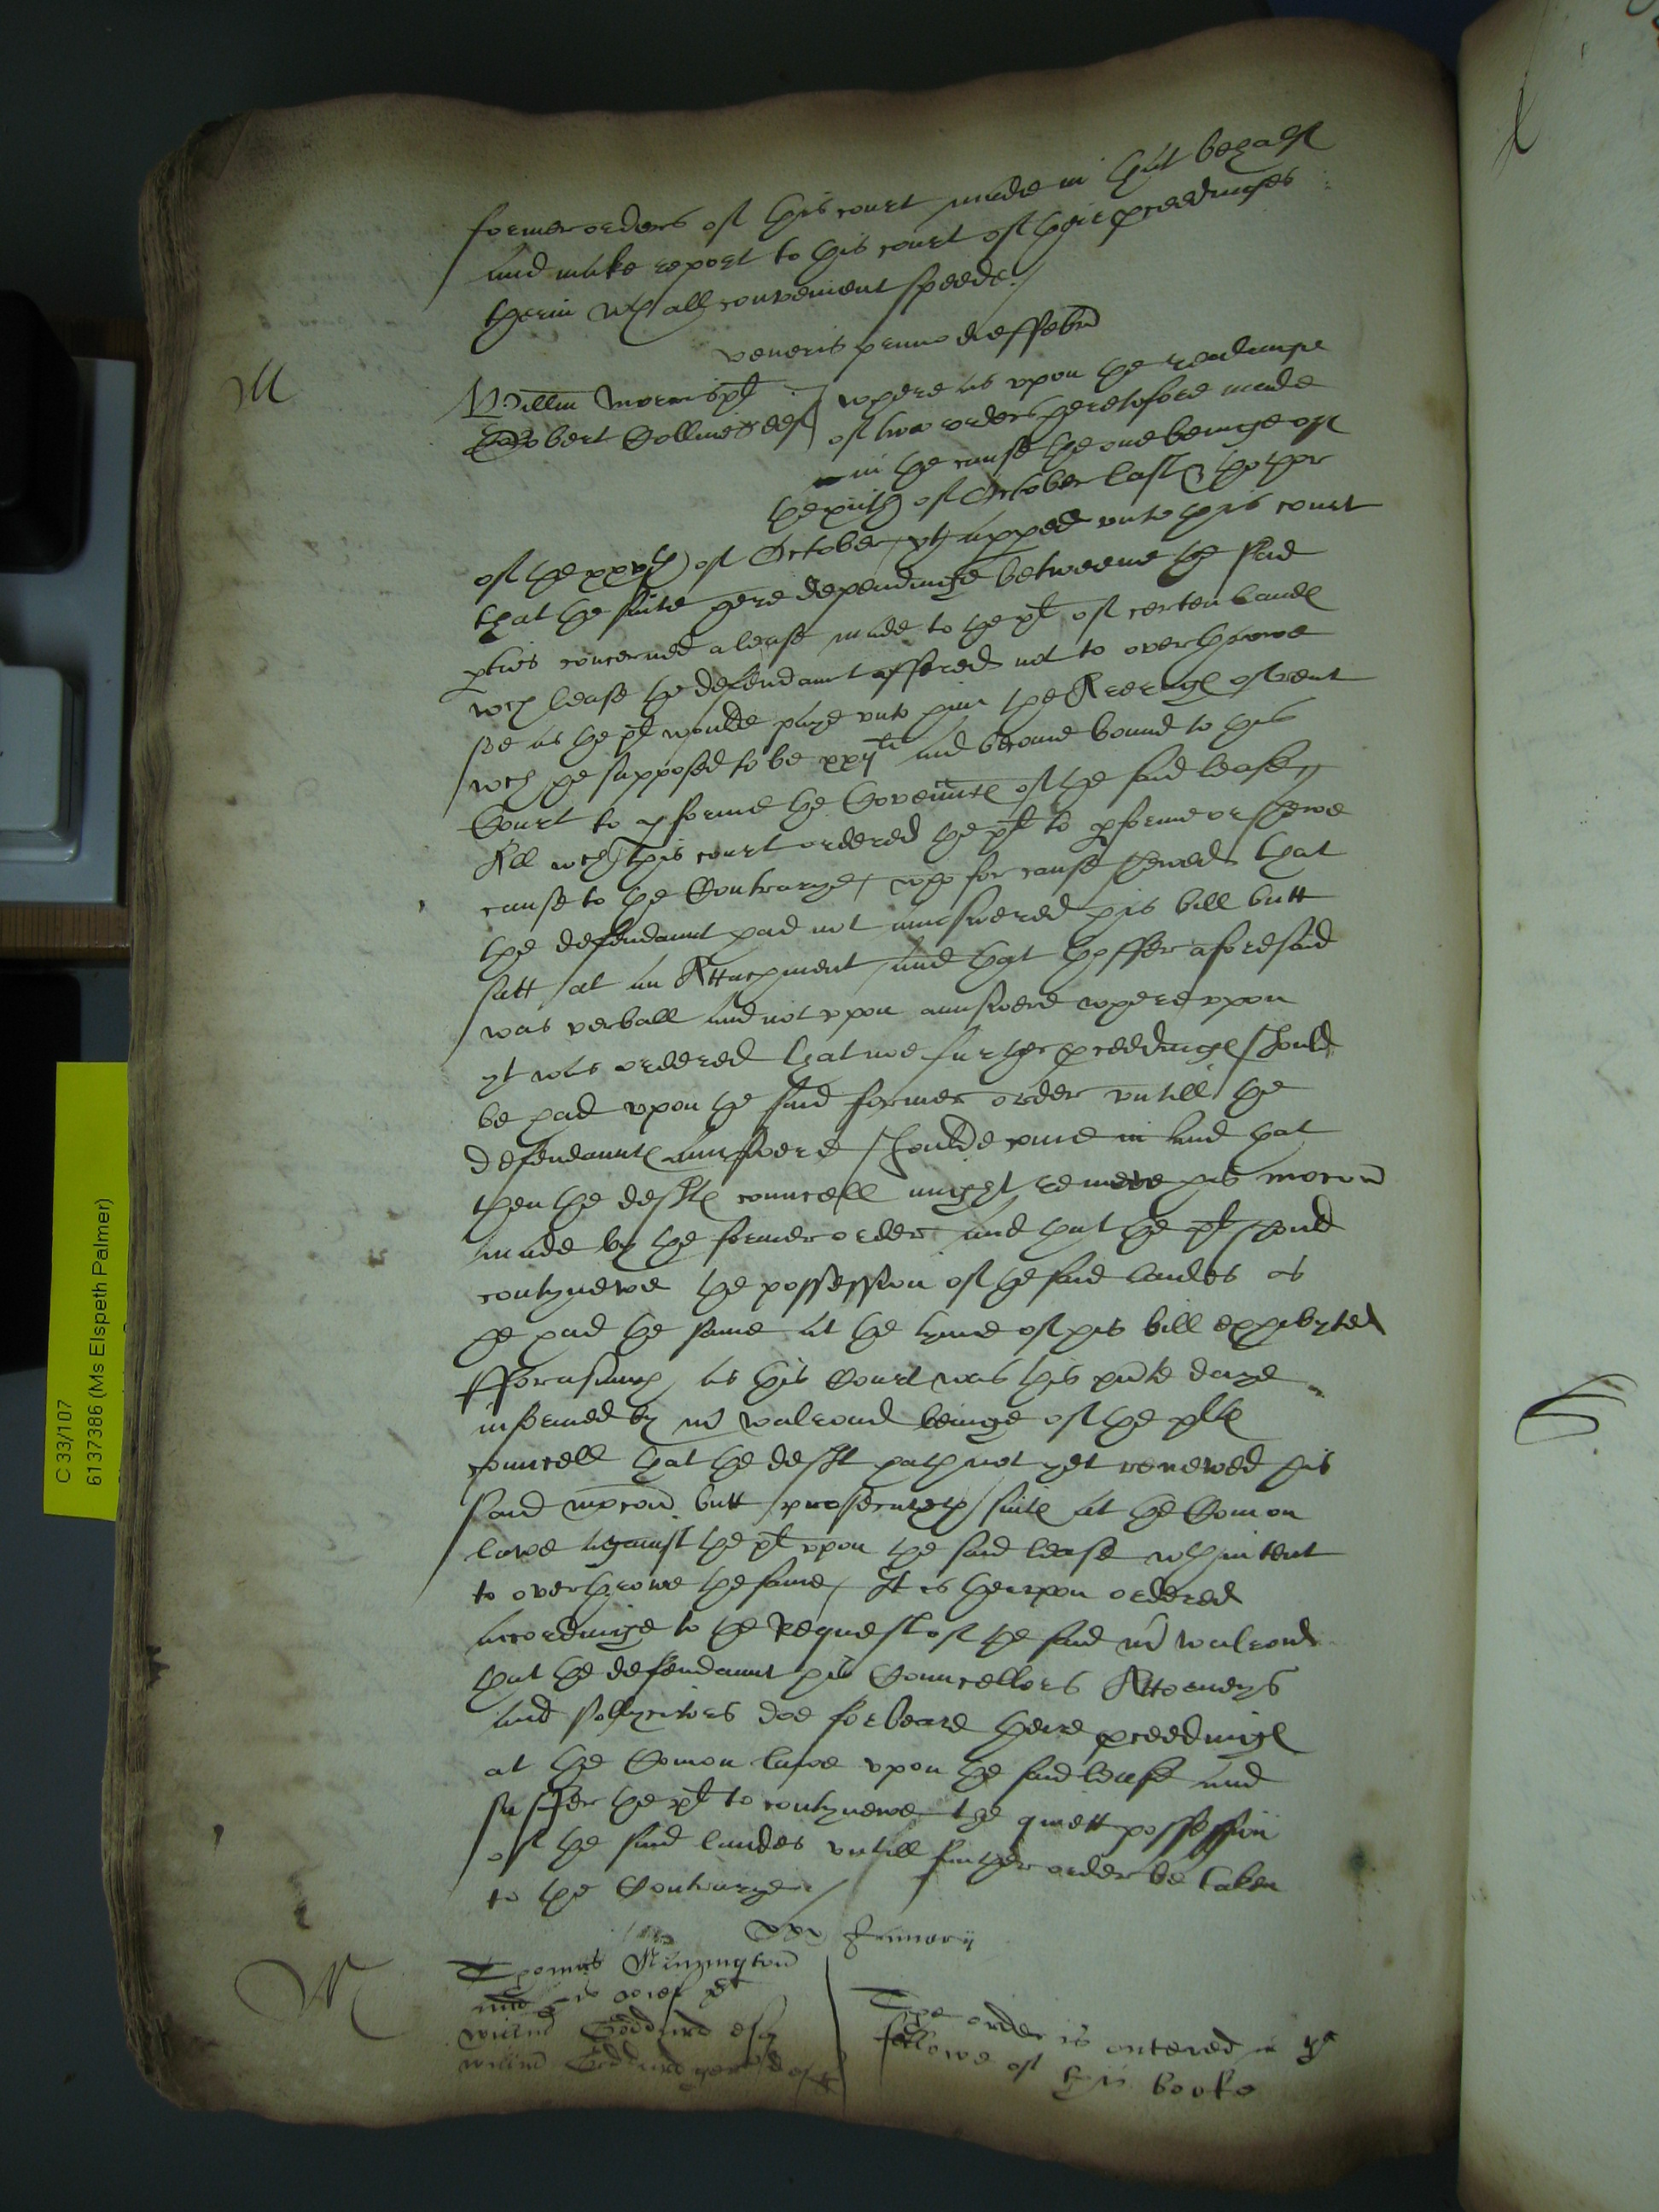 former orders of this court made in that behalf
and make report to this court of their pceedinges
therin wth all convenient speede./
veneris primo die ffebrͬ
M
Willm Morris plt
Robert Collins deft
where as vpon the readinge
of two orders heretofore made
in the cause the one beinge of
the xiith of October last & thother
of the xxvth of October, yt apped vnto this court
that the suite here dependinge betweene the said
pties concerned a lease made to the plt of certen landes
wch lease the defendaunt offered not to overthrowe
soe as the plt woulde paye vnto him the Arerages of rent
wch he supposed to be xxijli and become bound to this
Court to pforme the Covenntes of the said lease,
All wch this court ordered the plt to pforme or shewe
cause to the Contrarye, who for cause shewed that
the defendaunt had not aunswered his bill butt
satt at an Attachment and that thoffer aforesaid
was verball and not vpon aunswere wherevpon
yt was ordered that noe further pceedinges should
be had vpon the said former order vntill the
defendauntes aunswere shoulde come in and that
then the deftes councell might renewe his mocon
made by the former order and that the plt should
contynewe the possession of the said landes as
he had the same at the tyme of his bill exhibyted
fforasmuch as this Court was this pnte daye
informed by mr Walrond beinge of the pltes
councell that the deft hath not yet renewed his
said mocon butt prosecuteth suite at the Comon
lawe against the plt vpon the said lease wth intent
to overthrowe the same, It is thervpon ordered
accordinge to the Request of the said mr Walrond
that the defendaunt his Councellors Attorneys
and sollycitors doe forbeare there pceedinges
at the Comon lawe vpon the said lease and
suffer the plt to contynewe the quiett possession
of the said landes vntill further order be taken
to the Contrarye./
xxx Januarij
Thomas
plt
Willm Goddard esq
Willm Goddard gent deftes
The order is entered in ye
followe of this booke
C 33/107
6137386 (Ms Elspeth Palmer)